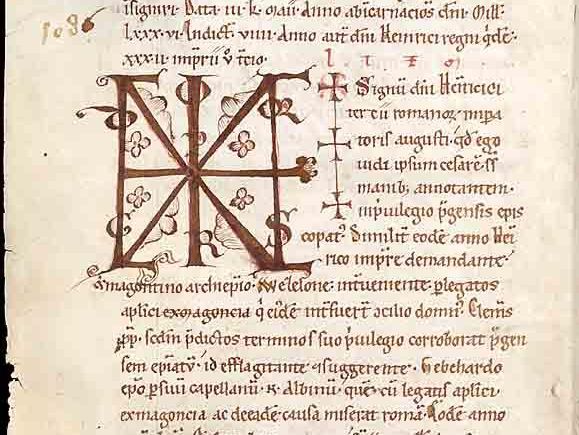 insigniri. Data. iii. k. Maii. Anno ab incarnacio͞s dn̄i Mill̄.
lxxx. vi. Indict. viiii. Anno aut̄ dn̄i Heinrici regni q̇de.
xxxii. imp̄rii ů tcio.
Signū dn̄i Heinrici
tercii romanoꝝ impa
toris augusti. qd̄ ego
uidi ipsum cesarē. ss
manib; annotantem.
inp̄uilegio p̄gensis epis
copat᷒. Similit̄ eodē anno Hei
rico imp̄re demandante
magontino archiep̄io. Wezelone. int̄ueniente ꝑlegatos
apl̄ici exmagoncia q̇ eidē int̄fuer̄t ↄcilio domn᷒. Clem̄s
pp̄. sedm̄ p̄dictos terminos suo p̄uilegio corroborat p̄gen
sem ep̄iatū. id efflagitante ⁊suggerente. Gebehardo
ep̄o ꝑsuū capellanū. n̄. Albinū. quē cū legatis apl̄ici
exmagoncia ac deeadē causa miserat romā. Eodē anno